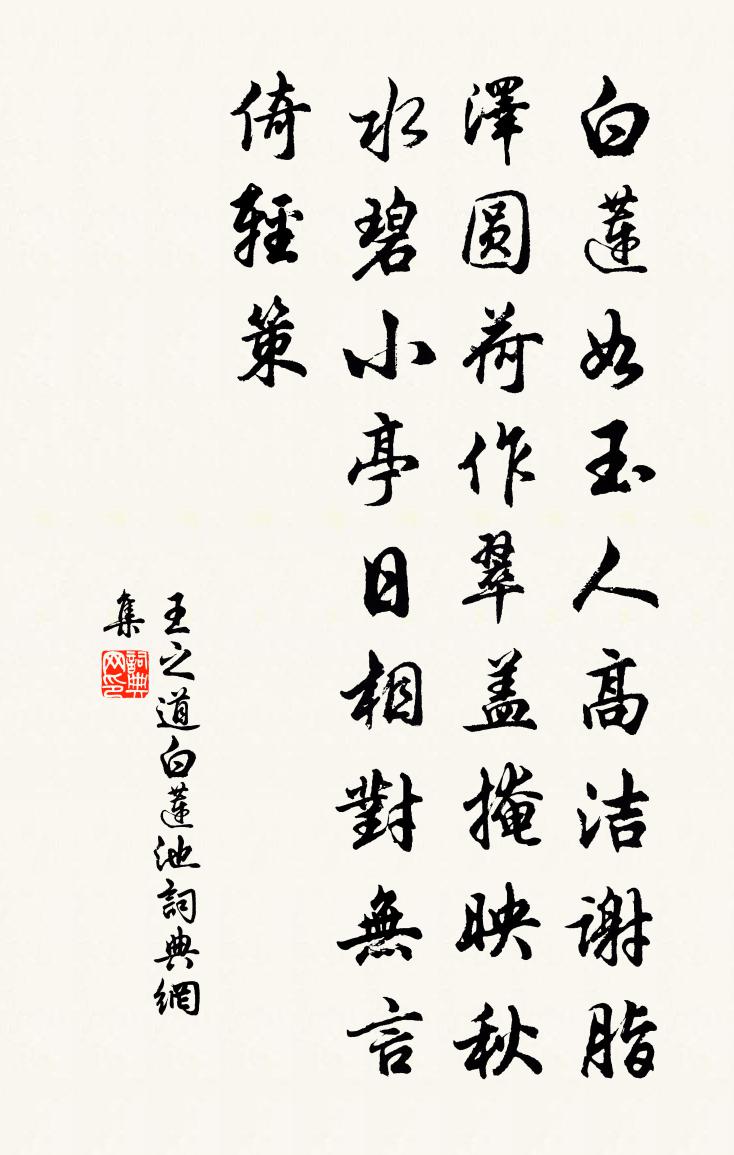 白蓮如玉人高洁谢脂
澤圆荷作翠盖掩映秋
水碧小亭日相對無言
倚輕策
王之道白蓮池詞典網
集
詞典
网印